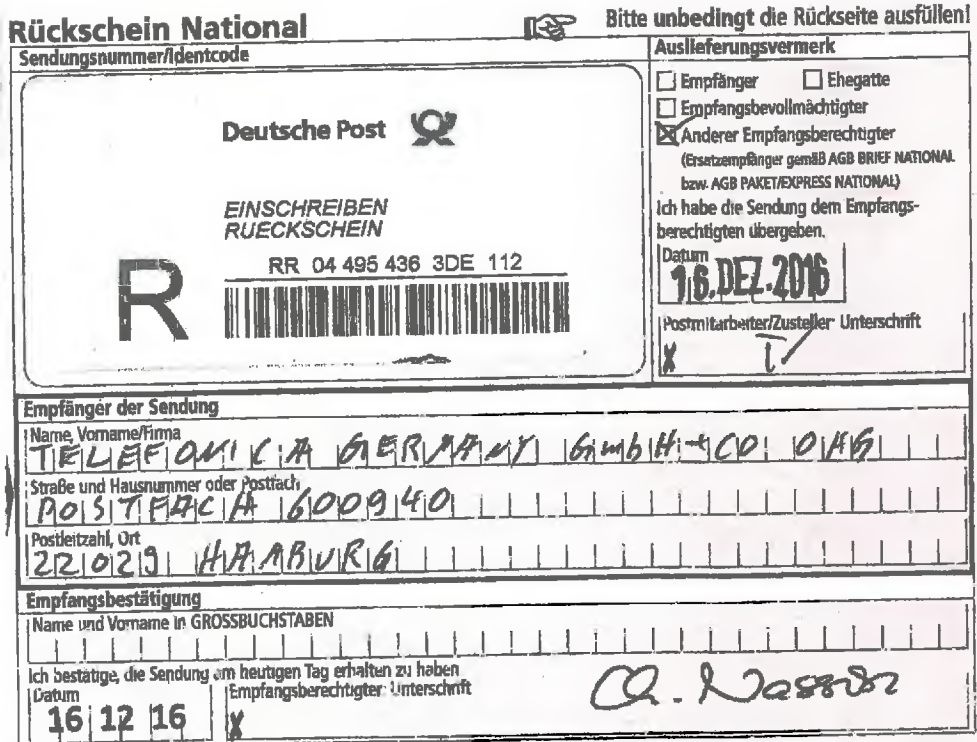 Rückschein National
Bitte unbedingt die Rückseite ausfüllen!
Sendungsnummer/Identcode
Deutsche Post
EINSCHREIBEN
RUECKSCHEIN
R
RR 04 495 436 3DE 112
Auslieferungsvermerk
Empfänger Ehegatte
Empfangsbevollmächtigter
Anderer Empfangsberechtigter
(Ersatzempfänger gemäß AGB BRIEF NATIONAL
bzw. AGB PAKET/EXPRESS NATIONAL)
Ich habe die Sendung dem Empfangs-
berechtigten übergeben.
Datum
16. DEZ. 2016
Postmitarbeiter/Zusteller: Unterschrift
X
Empfänger der Sendung
Name, Vorname/Firma
TELEFONICA GERMANY GmbH + CO OHG
Straße und Hausnummer oder Postfach
POSTFACH 600940
Postleitzahl, Ort
22029 HAMBURG
Empfangsbestätigung
Name und Vorname in GROSSBUCHSTABEN
Ich bestätige, die Sendung am heutigen Tag erhalten zu haben
Datum
16 12 16
Empfangsberechtigter: Unterschrift
X